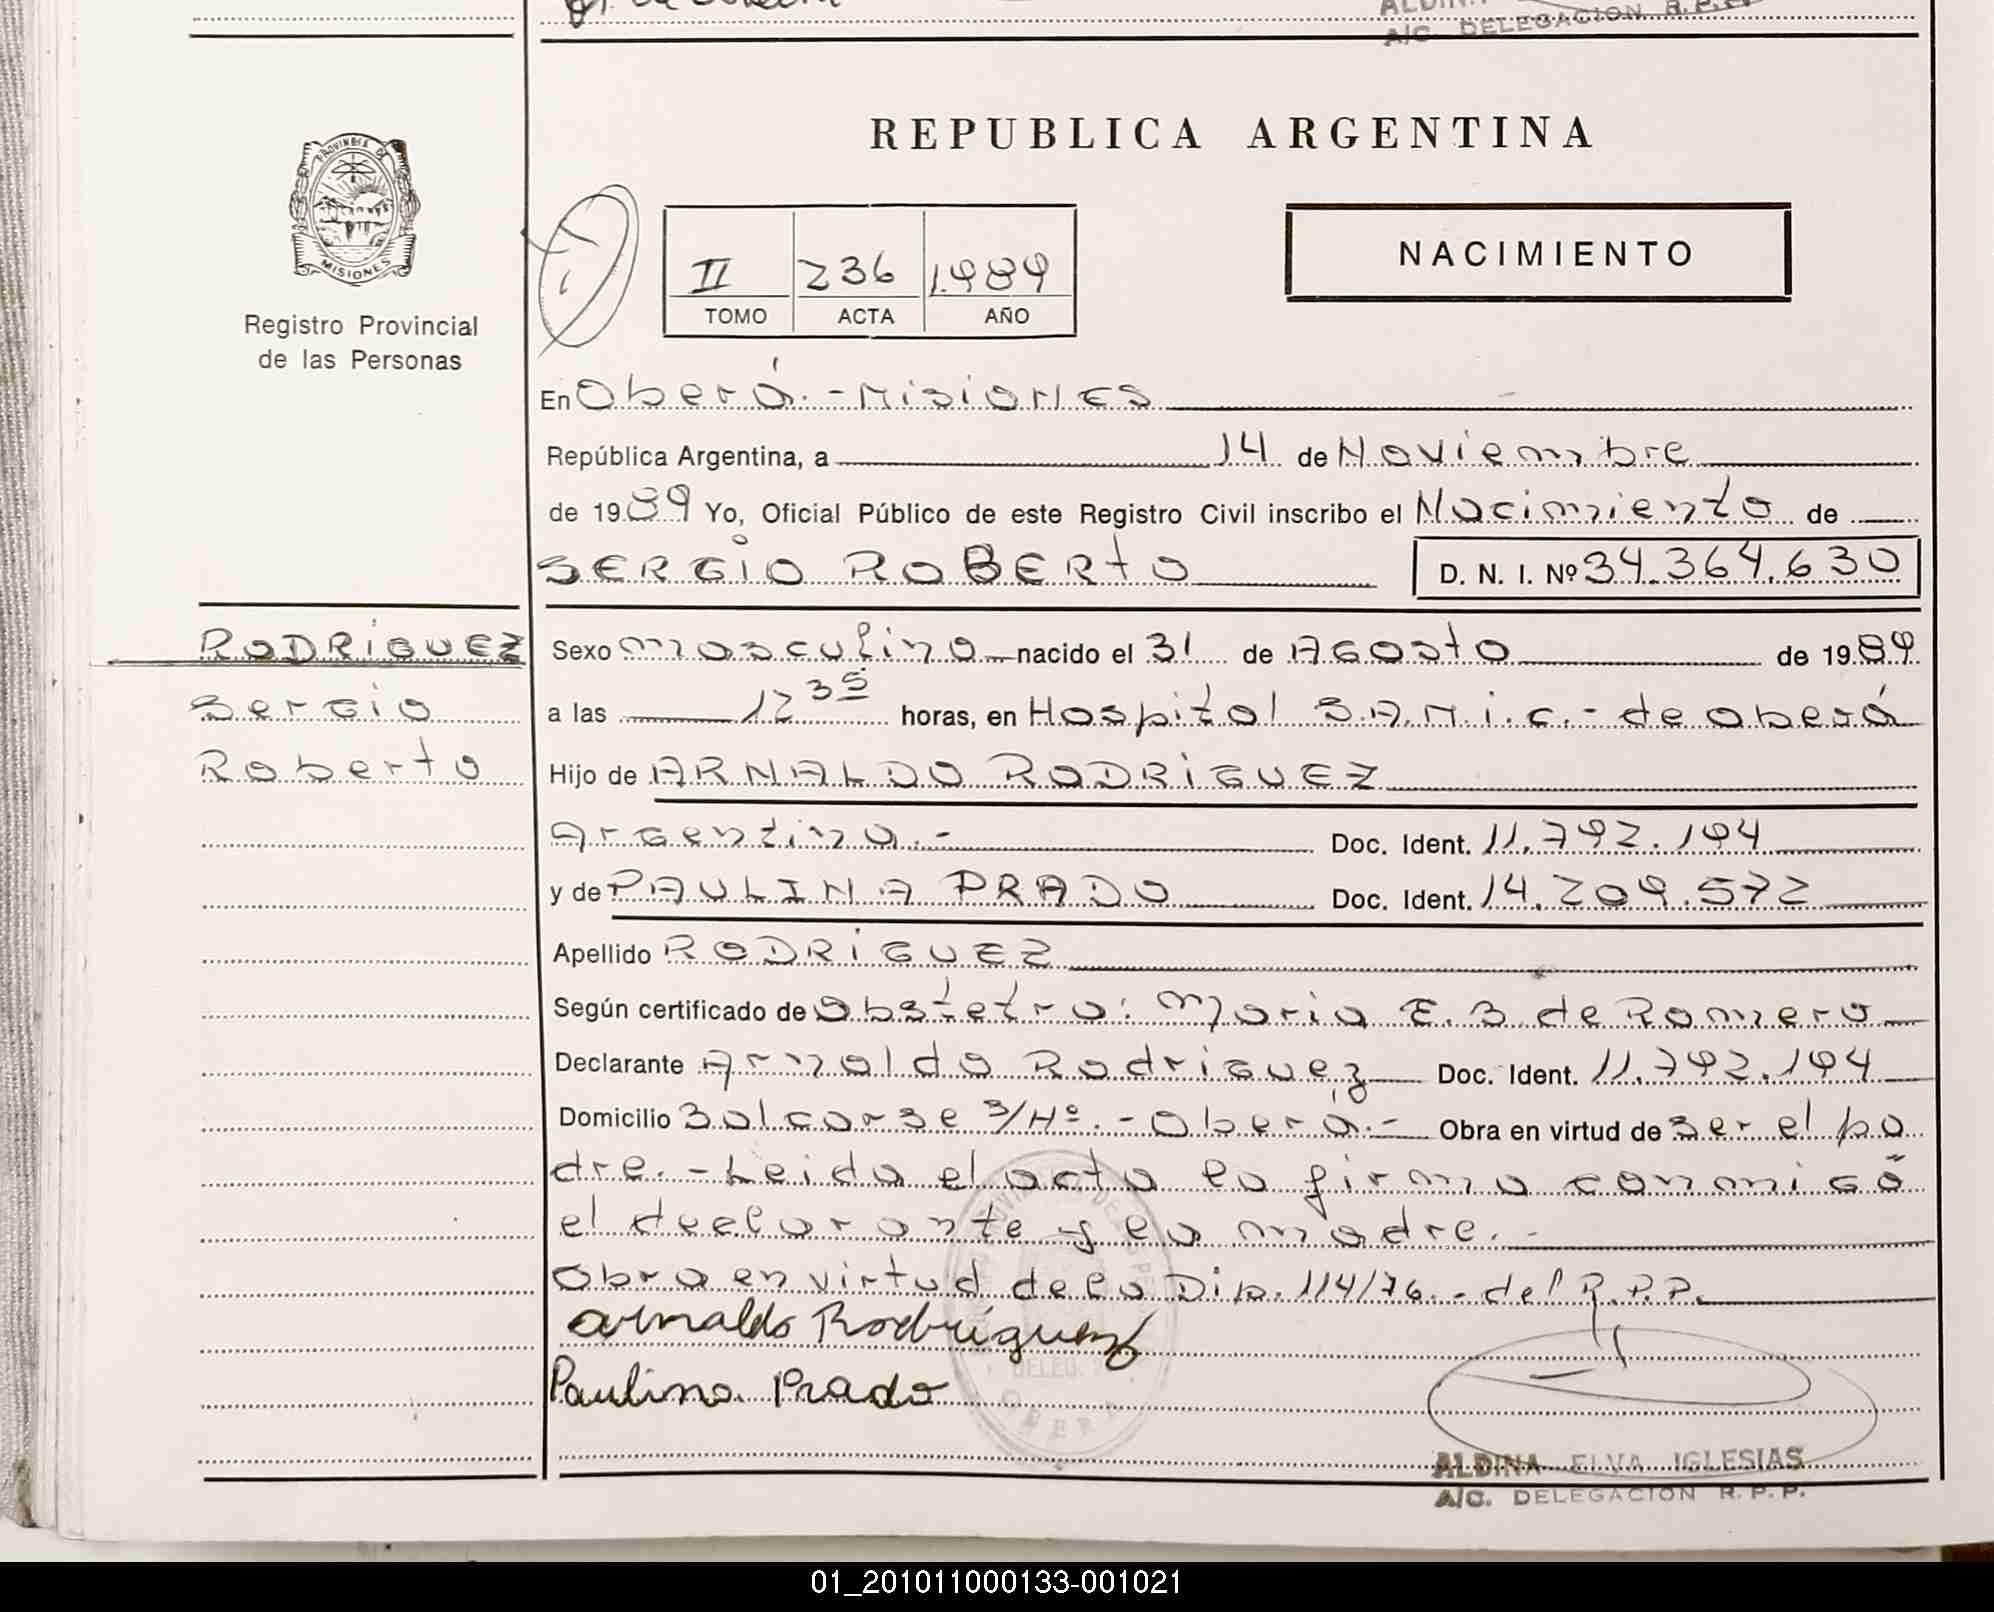 A/C. DELEGACION R.P.P.
REPUBLICA ARGENTINA
PROVINCIA DE
MISIONES
Registro Provincial
de las Personas
II 236 1.989
TOMO ACTA AÑO
NACIMIENTO
En Oberá.-Misiones
República Argentina, a 14 de Noviembre
de 1989 Yo, Oficial Público de este Registro Civil inscribo el Nacimiento de
SERGIO ROBERTO D. N. I. Nº 34.364.630
RODRIGUEZ
Sergio
Roberto
Sexo masculino nacido el 31 de Agosto de 1989
a las 12 35 horas, en Hospital S.A.M.i.c.- de oberá
Hijo de ARNALDO RODRIGUEZ
Argentina.- Doc. Ident. 11.792.194
y de PAULINA PRADO Doc. Ident. 14.209.572
Apellido RODRIGUEZ
Según certificado de Obstetra: Maria E. B. de Romero
Declarante Arnaldo Rodriguez Doc. Ident. 11.792.194
Domicilio Balcarse S/Nº.-Oberá.- Obra en virtud de ser el pa
dre.-Leida el acta la firma conmigo
el declarante y la madre.-
Obra en virtud de la Dip. 114/76.- del R.P.P.
Arnaldo Rodríguez
Paulina Prado
ALDINA ELVA IGLESIAS
A/C. DELEGACION R.P.P.
01_201011000133-001021